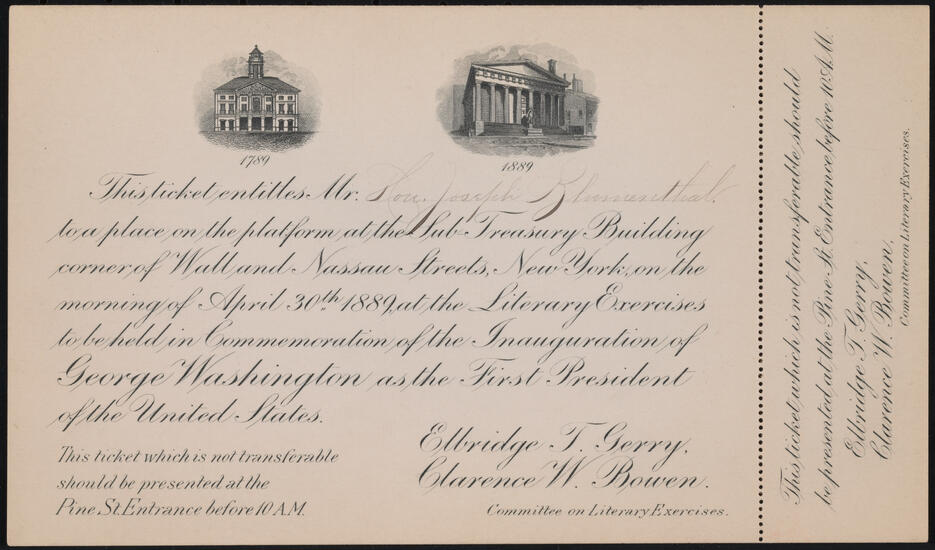 1789
1889
This ticket entitles Mr. Hon. Joseph Blumenthal.
to a place on the platform, at the Sub-Treasury Building
corner of Wall and Nassau Streets, New York, on the
morning of April 30th 1889, at the Literary Exercises
to be held in Commemoration of the Inauguration of
George Washington as the First President
of the United States.
This ticket which is not transferable
should be presented at the
Pine St. Entrance before 10 A.M.
Elbridge T. Gerry,
Clarence W. Bowen.
Committee on Literary Exercises.
This ticket which is not transferable should
be presented at the Pine St. Entrance before 10 A.M.
Elbridge T. Gerry,
Clarence W. Bowen,
Committee on Literary Exercises.